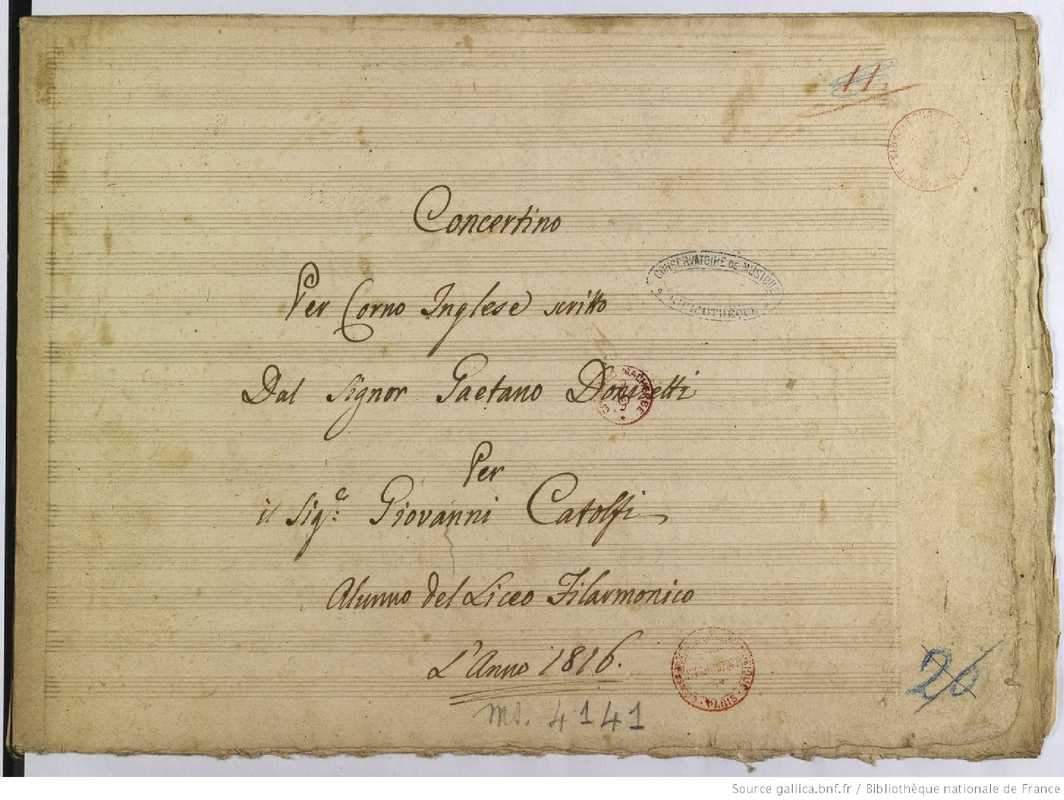 11
Concertino
CONSERVATOIRE DE MUSIQUE
BIBLIOTHÈQUE
Per Corno Inglese scritto
Dal Signor Gaetano Donizetti
Per
il Sigr. Giovanni Catolfi
Alunno del Liceo Filarmonico
L'Anno 1816.
26
ms. 4141
Source gallica.bnf.fr / Bibliothèque nationale de France